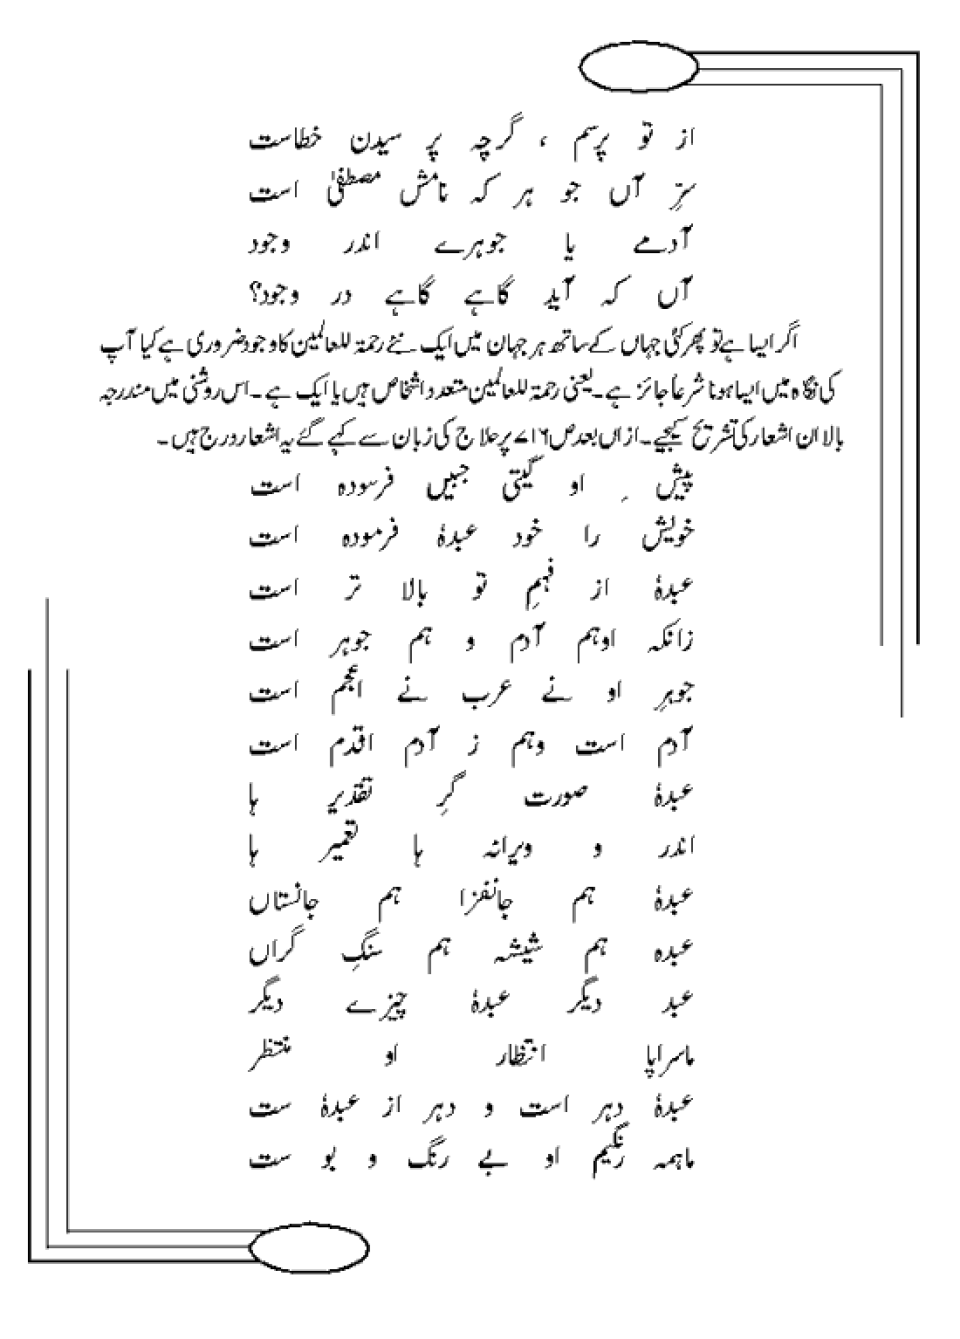 از تو پرسم ، گرچہ پر سیدن خطاست
سرِّ آں جو ہر کہ نامش مصطفیٰ است
آدمے یا جوہرے اندر وجود
آں کہ آید گاہے گاہے در وجود؟
اگر ایسا ہے تو پھر کئی جہاں کے ساتھ ہر جہان میں ایک نئے رحمۃ للعالمین کا وجود ضروری ہے کیا آپ
کی نگاہ میں ایسا ہونا شرعاً جائز ہے۔ یعنی رحمۃ للعالمین متعدد اشخاص ہیں یا ایک ہے۔ اس روشنی میں مندرجہ
بالا ان اشعار کی تشریح کیجیے۔ ازاں بعد ص ۷۱۶ پر حلاج کی زبان سے کہے گئے یہ اشعار درج ہیں۔
پیش ِ او گیتی جبیں فرسودہ است
خویش را خود عبدہٗ فرمودہ است
عبدہٗ از فہمِ تو بالا تر است
زانکہ اوہم آدم و ہم جوہر است
جوہرِ او نے عرب نے اعجم است
آدم است وہم ز آدم اقدم است
عبدہٗ صورت گرِ تقدیر ہا
اندر و ویرانہ ہا تعمیر ہا
عبدہٗ ہم جانفزا ہم جانستاں
عبدہ ہم شیشہ ہم سنگِ گراں
عبد دیگر عبدہٗ چیزے دیگر
ماسراپا انتظار او منتظر
عبدہٗ دہر است و دہر از عبدہٗ ست
ماہمہ رنگیم او بے رنگ و بو ست